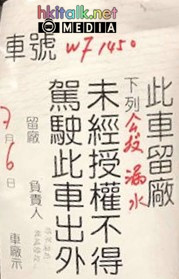 hkitalk.net
MEDIA
車號 WF1450
此車留廠
下列 漏水
未經授權不得
駕駛此車出外
留廠負責人
7月6日
車廠示